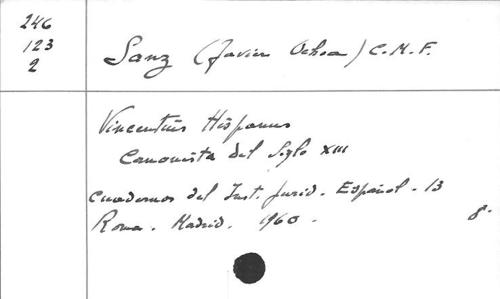 246
123
2
Sanz (Javier Ochoa) C.M.F.
Vincentius Hispanus
Canonista del Siglo XIII
Cuadernos del Inst. Jurid. Español - 13
Roma. Madrid. 1960. 8º